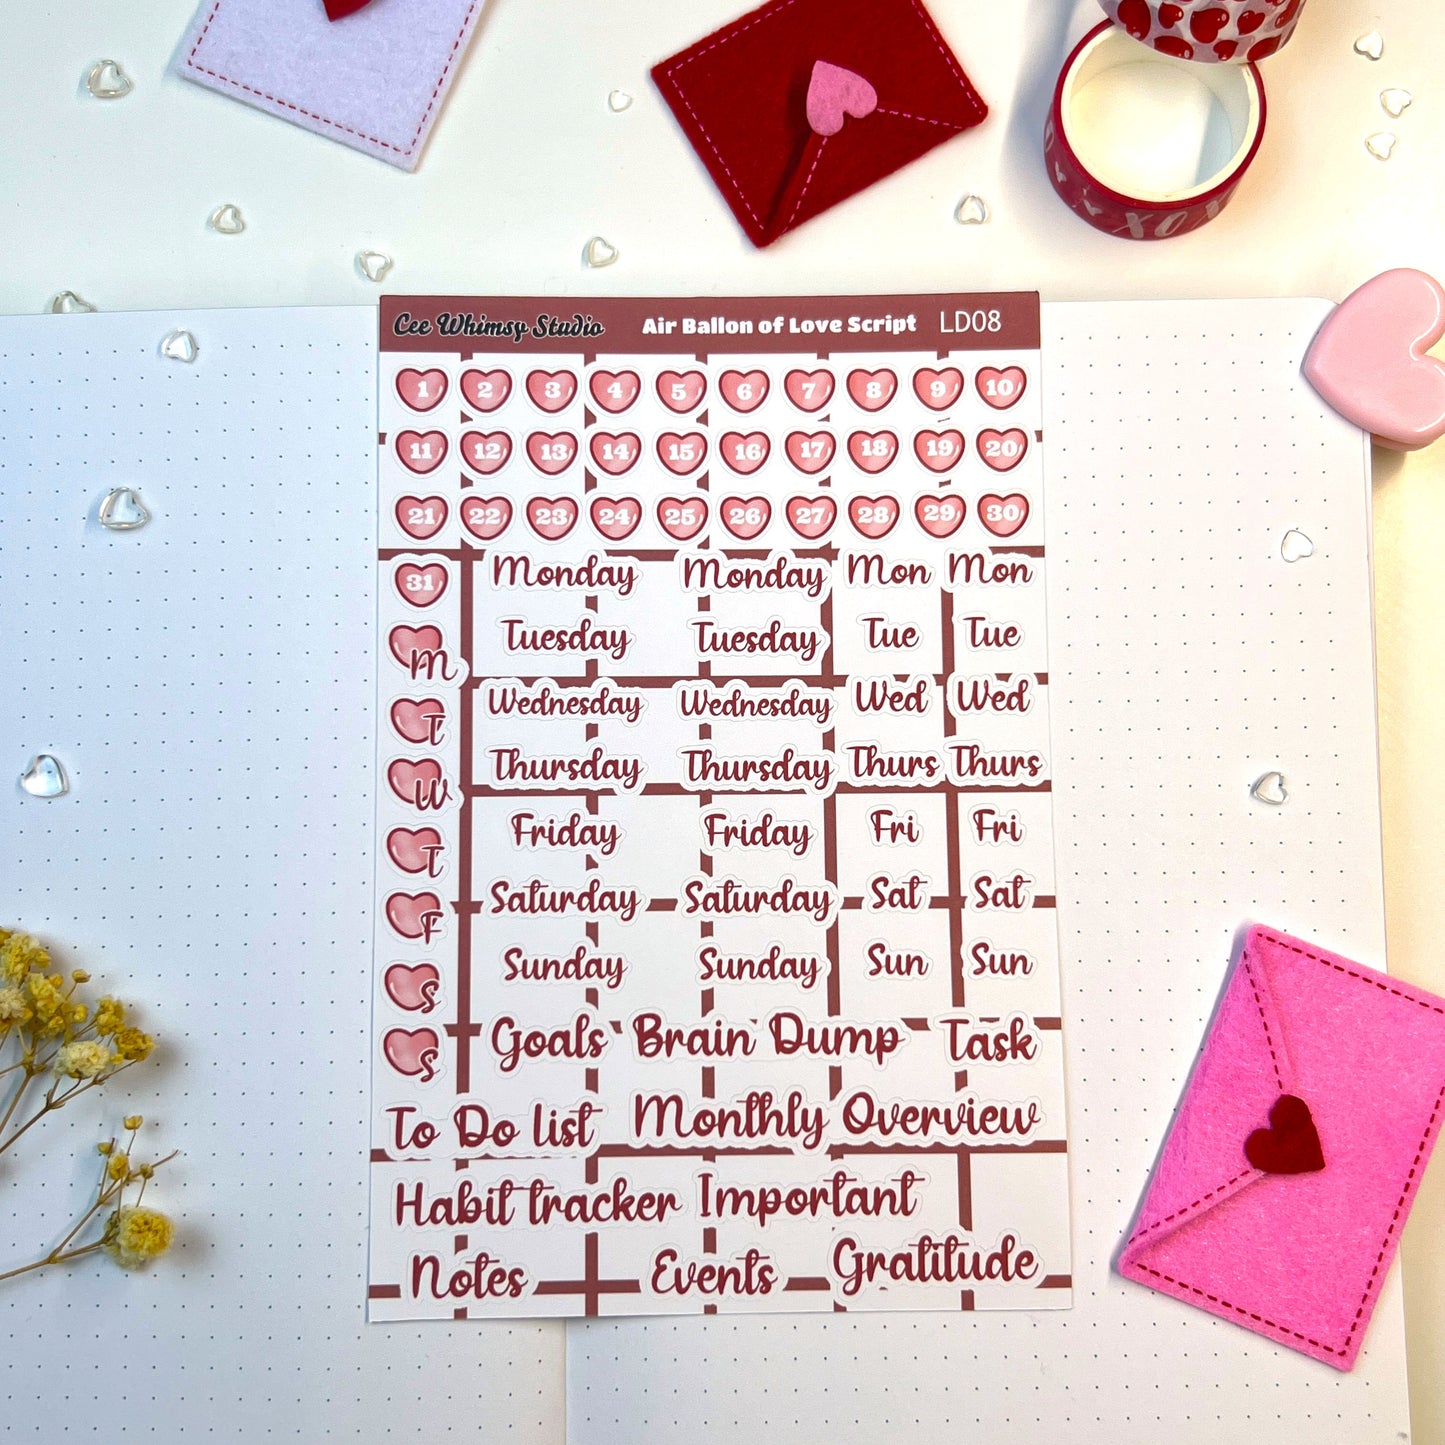 Cee Whimsy Studio Air Ballon of Love Script LD08
1 2 3 4 5 6 7 8 9 10
11 12 13 14 15 16 17 18 19 20
21 22 23 24 25 26 27 28 29 30
31 Monday Monday Mon Mon
M Tuesday Tuesday Tue Tue
T Wednesday Wednesday Wed Wed
W Thursday Thursday Thurs Thurs
T Friday Friday Fri Fri
F Saturday Saturday Sat Sat
S Sunday Sunday Sun Sun
S Goals Brain Dump Task
To Do list Monthly Overview
Habit tracker Important
Notes Events Gratitude
XOX